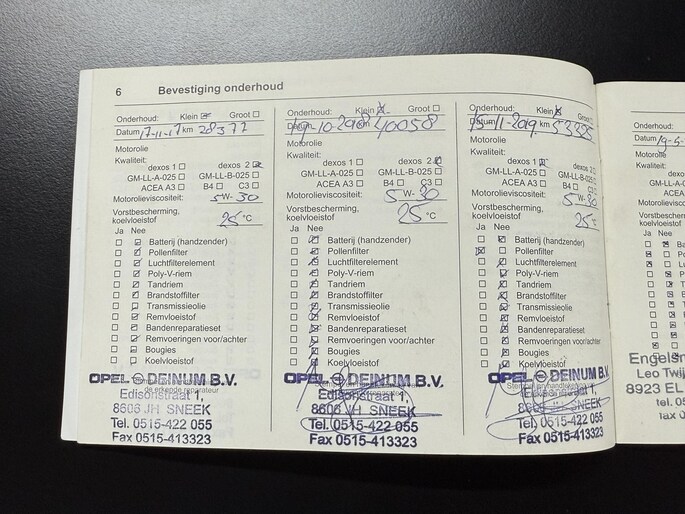 6 Bevestiging onderhoud
Onderhoud: Klein Groot
Datum 17-11-17 km 28377
Motorolie
Kwaliteit:
dexos 1 dexos 2
GM-LL-A-025 GM-LL-B-025
ACEA A3 B4 C3
Motorolieviscositeit: 5W-30
Vorstbescherming,
koelvloeistof 25 °C
Ja Nee
Batterij (handzender)
Pollenfilter
Luchtfilterelement
Poly-V-riem
Tandriem
Brandstoffilter
Transmissieolie
Remvloeistof
Bandenreparatieset
Remvoeringen voor/achter
Bougies
Koelvloeistof
OPEL DEINUM B.V.
de erkende reparateur
Edisonstraat 1,
8606 JH SNEEK
Tel. 0515-422 055
Fax 0515-413323
Onderhoud: Klein Groot
Datum 19-10-2018 40058
Motorolie
Kwaliteit:
dexos 1 dexos 2
GM-LL-A-025 GM-LL-B-025
ACEA A3 B4 C3
Motorolieviscositeit: 5W-30
Vorstbescherming,
koelvloeistof 25 °C
Ja Nee
Batterij (handzender)
Pollenfilter
Luchtfilterelement
Poly-V-riem
Tandriem
Brandstoffilter
Transmissieolie
Remvloeistof
Bandenreparatieset
Remvoeringen voor/achter
Bougies
Koelvloeistof
OPEL DEINUM B.V.
Edisonstraat 1,
8606 JH SNEEK
Tel. 0515-422 055
Fax 0515-413323
Onderhoud: Klein Groot
Datum 15-11-2019 km 53325
Motorolie
Kwaliteit:
dexos 1 dexos 2
GM-LL-A-025 GM-LL-B-025
ACEA A3 B4 C3
Motorolieviscositeit: 5W-30
Vorstbescherming,
koelvloeistof 25 °C
Ja Nee
Batterij (handzender)
Pollenfilter
Luchtfilterelement
Poly-V-riem
Tandriem
Brandstoffilter
Transmissieolie
Remvloeistof
Bandenreparatieset
Remvoeringen voor/achter
Bougies
Koelvloeistof
OPEL DEINUM B.V.
Edisonstraat 1,
8606 JH SNEEK
Tel. 0515-422 055
Fax 0515-413323
Onderhoud:
Datum
Motorolie
Kwaliteit:
GM-LL-A
ACEA
Motorolievisc
Vorstbesche
koelvloeistof
Ja Nee
Ba
Po
Lu
Po
Ta
Br
Tr
Re
Ba
Leo Twij
8923 EL
tel. 05